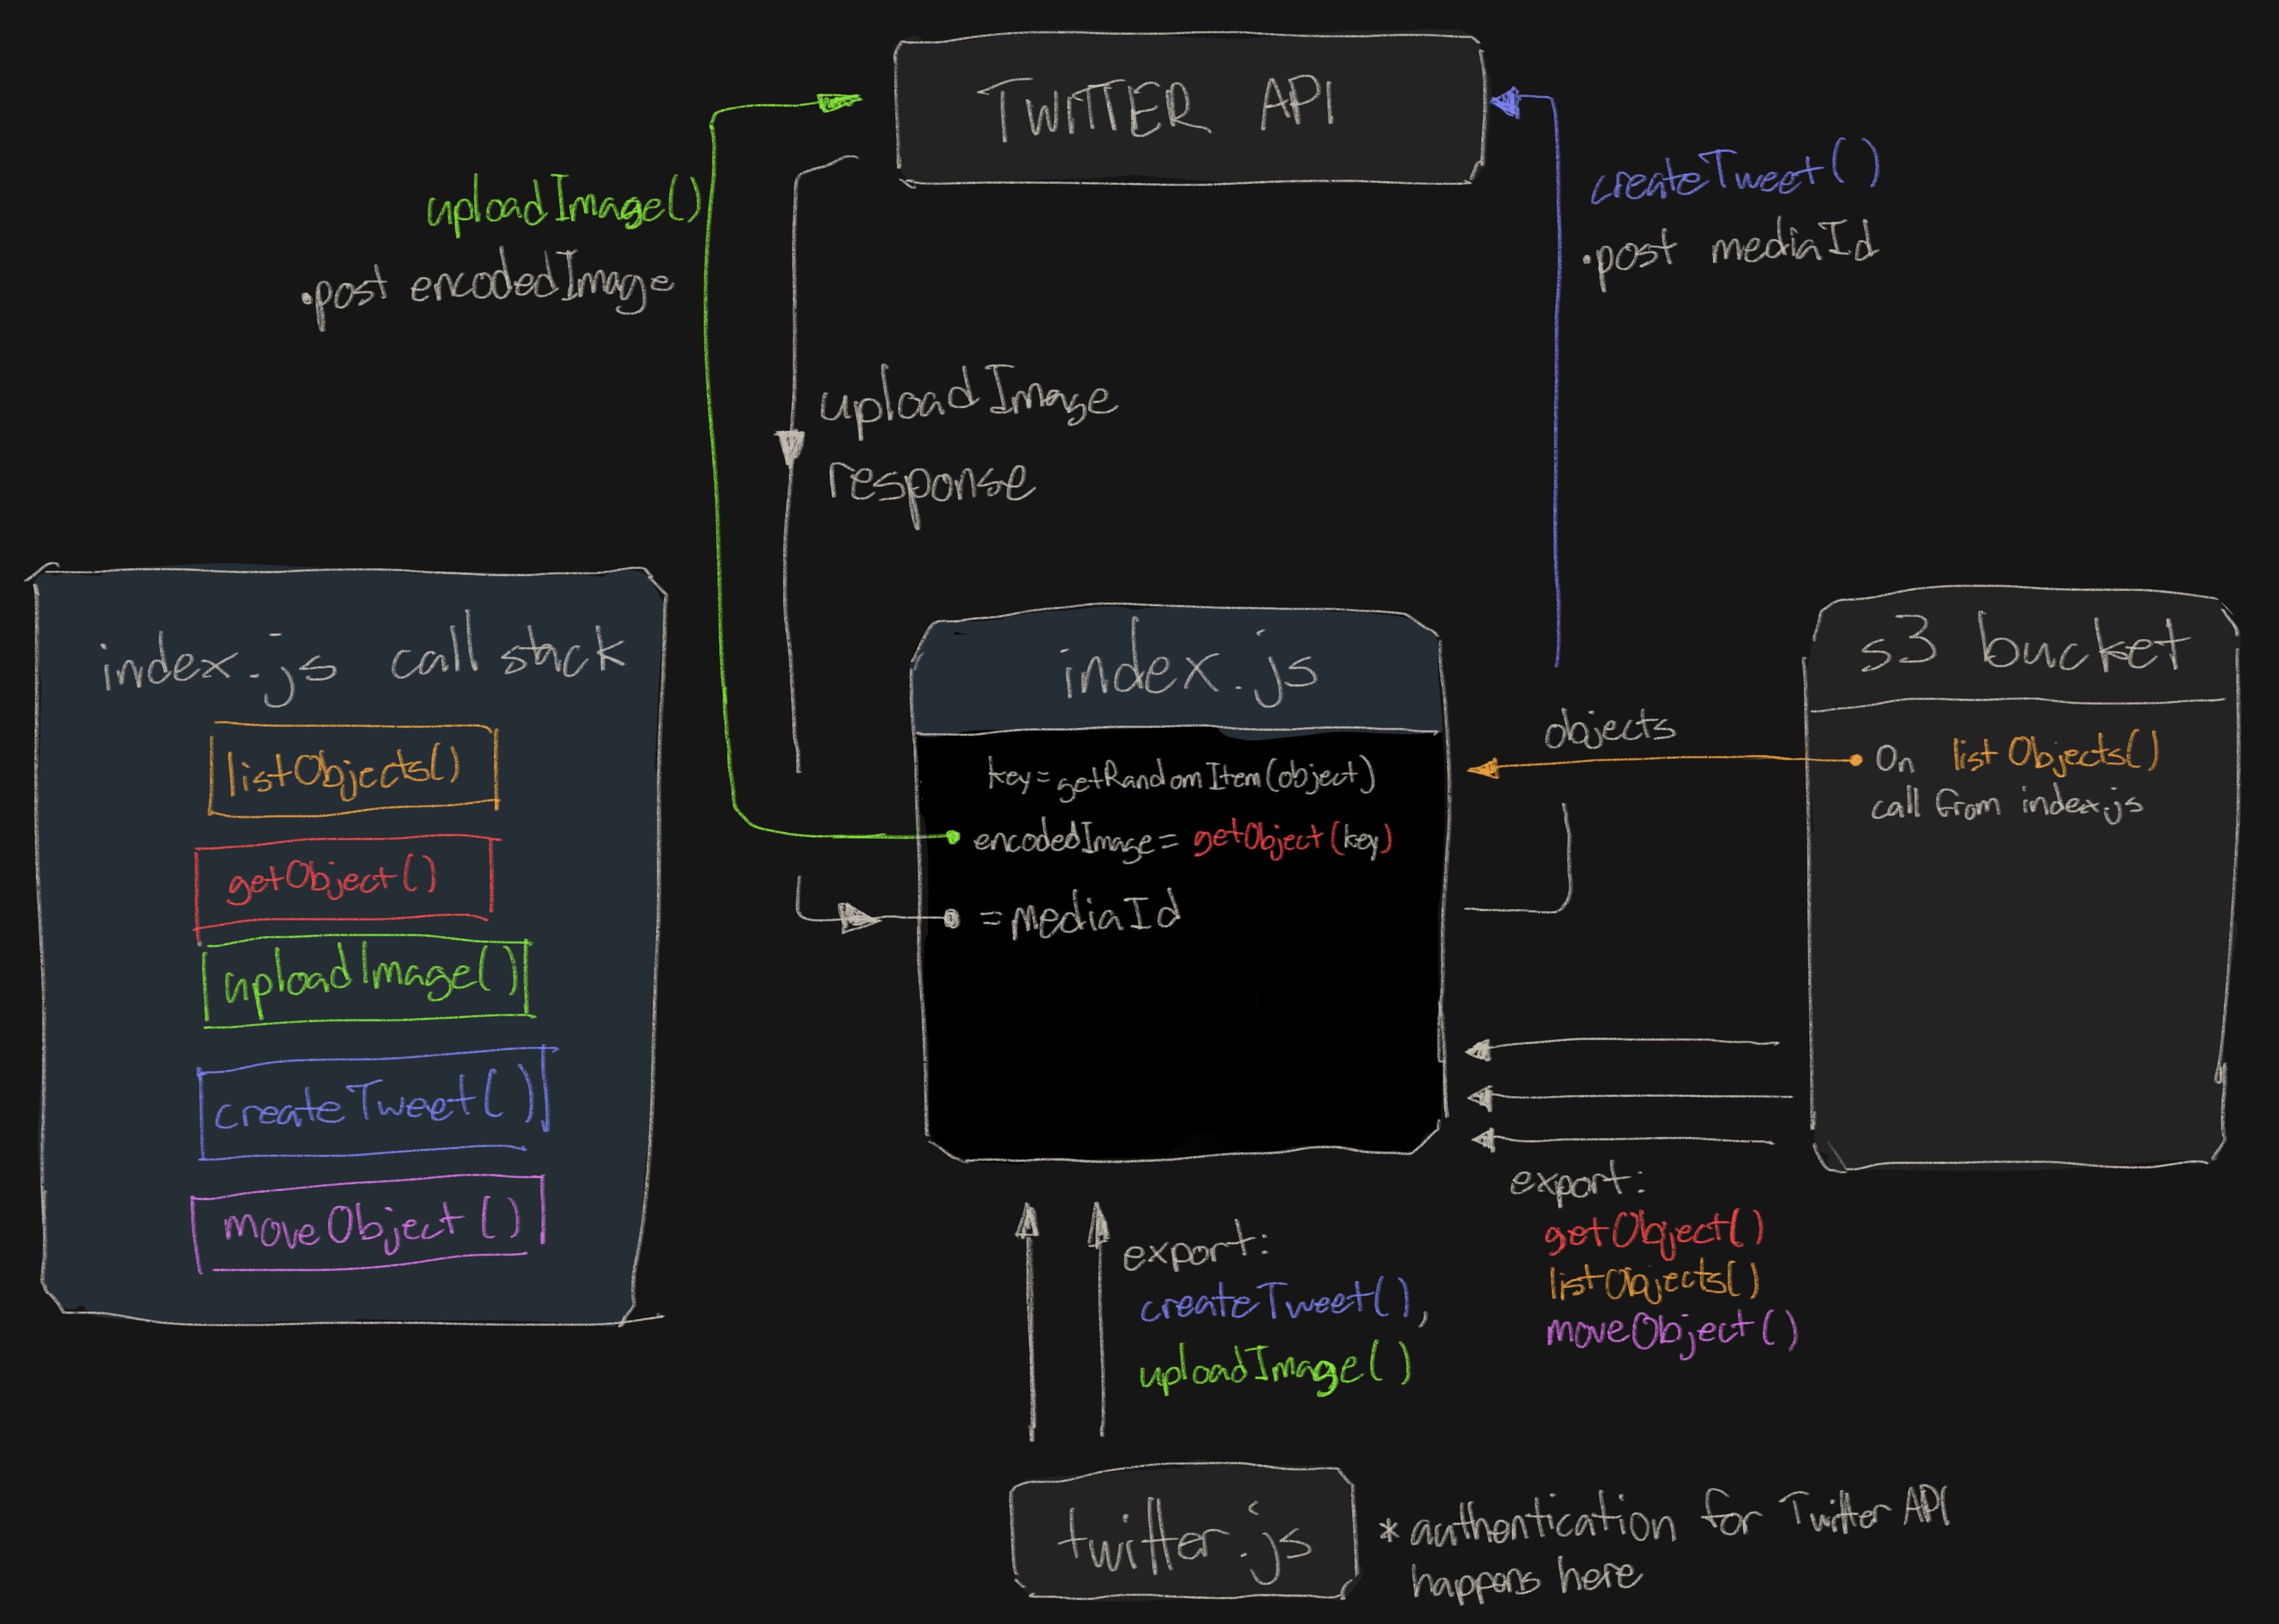 TWITTER API
uploadImage()
•post encodedImage
createTweet()
•post mediaId
uploadImage
response
index.js call stack
listObjects()
getObject()
uploadImage()
createTweet()
moveObject()
index.js
key=getRandomItem(object)
encodedImage=getObject(key)
=mediaId
objects
s3 bucket
On listObjects()
call from index.js
export:
getObject()
listObjects()
moveObject()
export:
createTweet(),
uploadImage()
twitter.js
*authentication for Twitter API
happens here